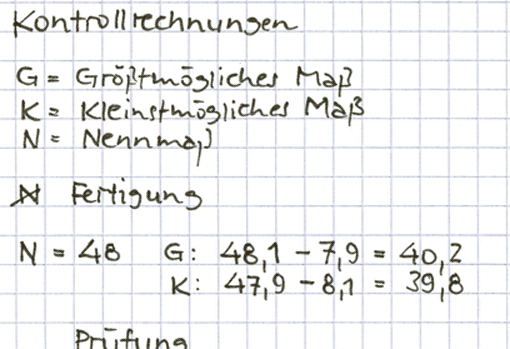 Kontrollrechnungen
G = Größtmögliches Maß
K = Kleinstmögliches Maß
N = Nennmaß
N Fertigung
N = 48 G: 48,1 - 7,9 = 40,2
K: 47,9 - 8,1 = 39,8
Prüfung